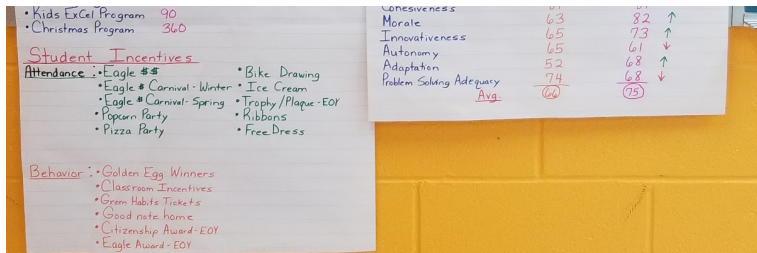 • Kids ExCel Program 90
• Christmas Program 360
Student Incentives
Attendance : • Eagle $$
• Eagle $ Carnival - Winter
• Eagle $ Carnival - Spring
• Popcorn Party
• Pizza Party
• Bike Drawing
• Ice Cream
• Trophy/Plaque - EOY
• Ribbons
• Free Dress
Behavior : • Golden Egg Winners
• Classroom Incentives
• Green Habits Tickets
• Good note home
• Citizenship Award - EOY
• Eagle Award - EOY
Cohesiveness
Morale 63 82 ↑
Innovativeness 65 73 ↑
Autonomy 65 61 ↓
Adaptation 52 68 ↑
Problem Solving Adequacy 74 68 ↓
Avg. 66 75